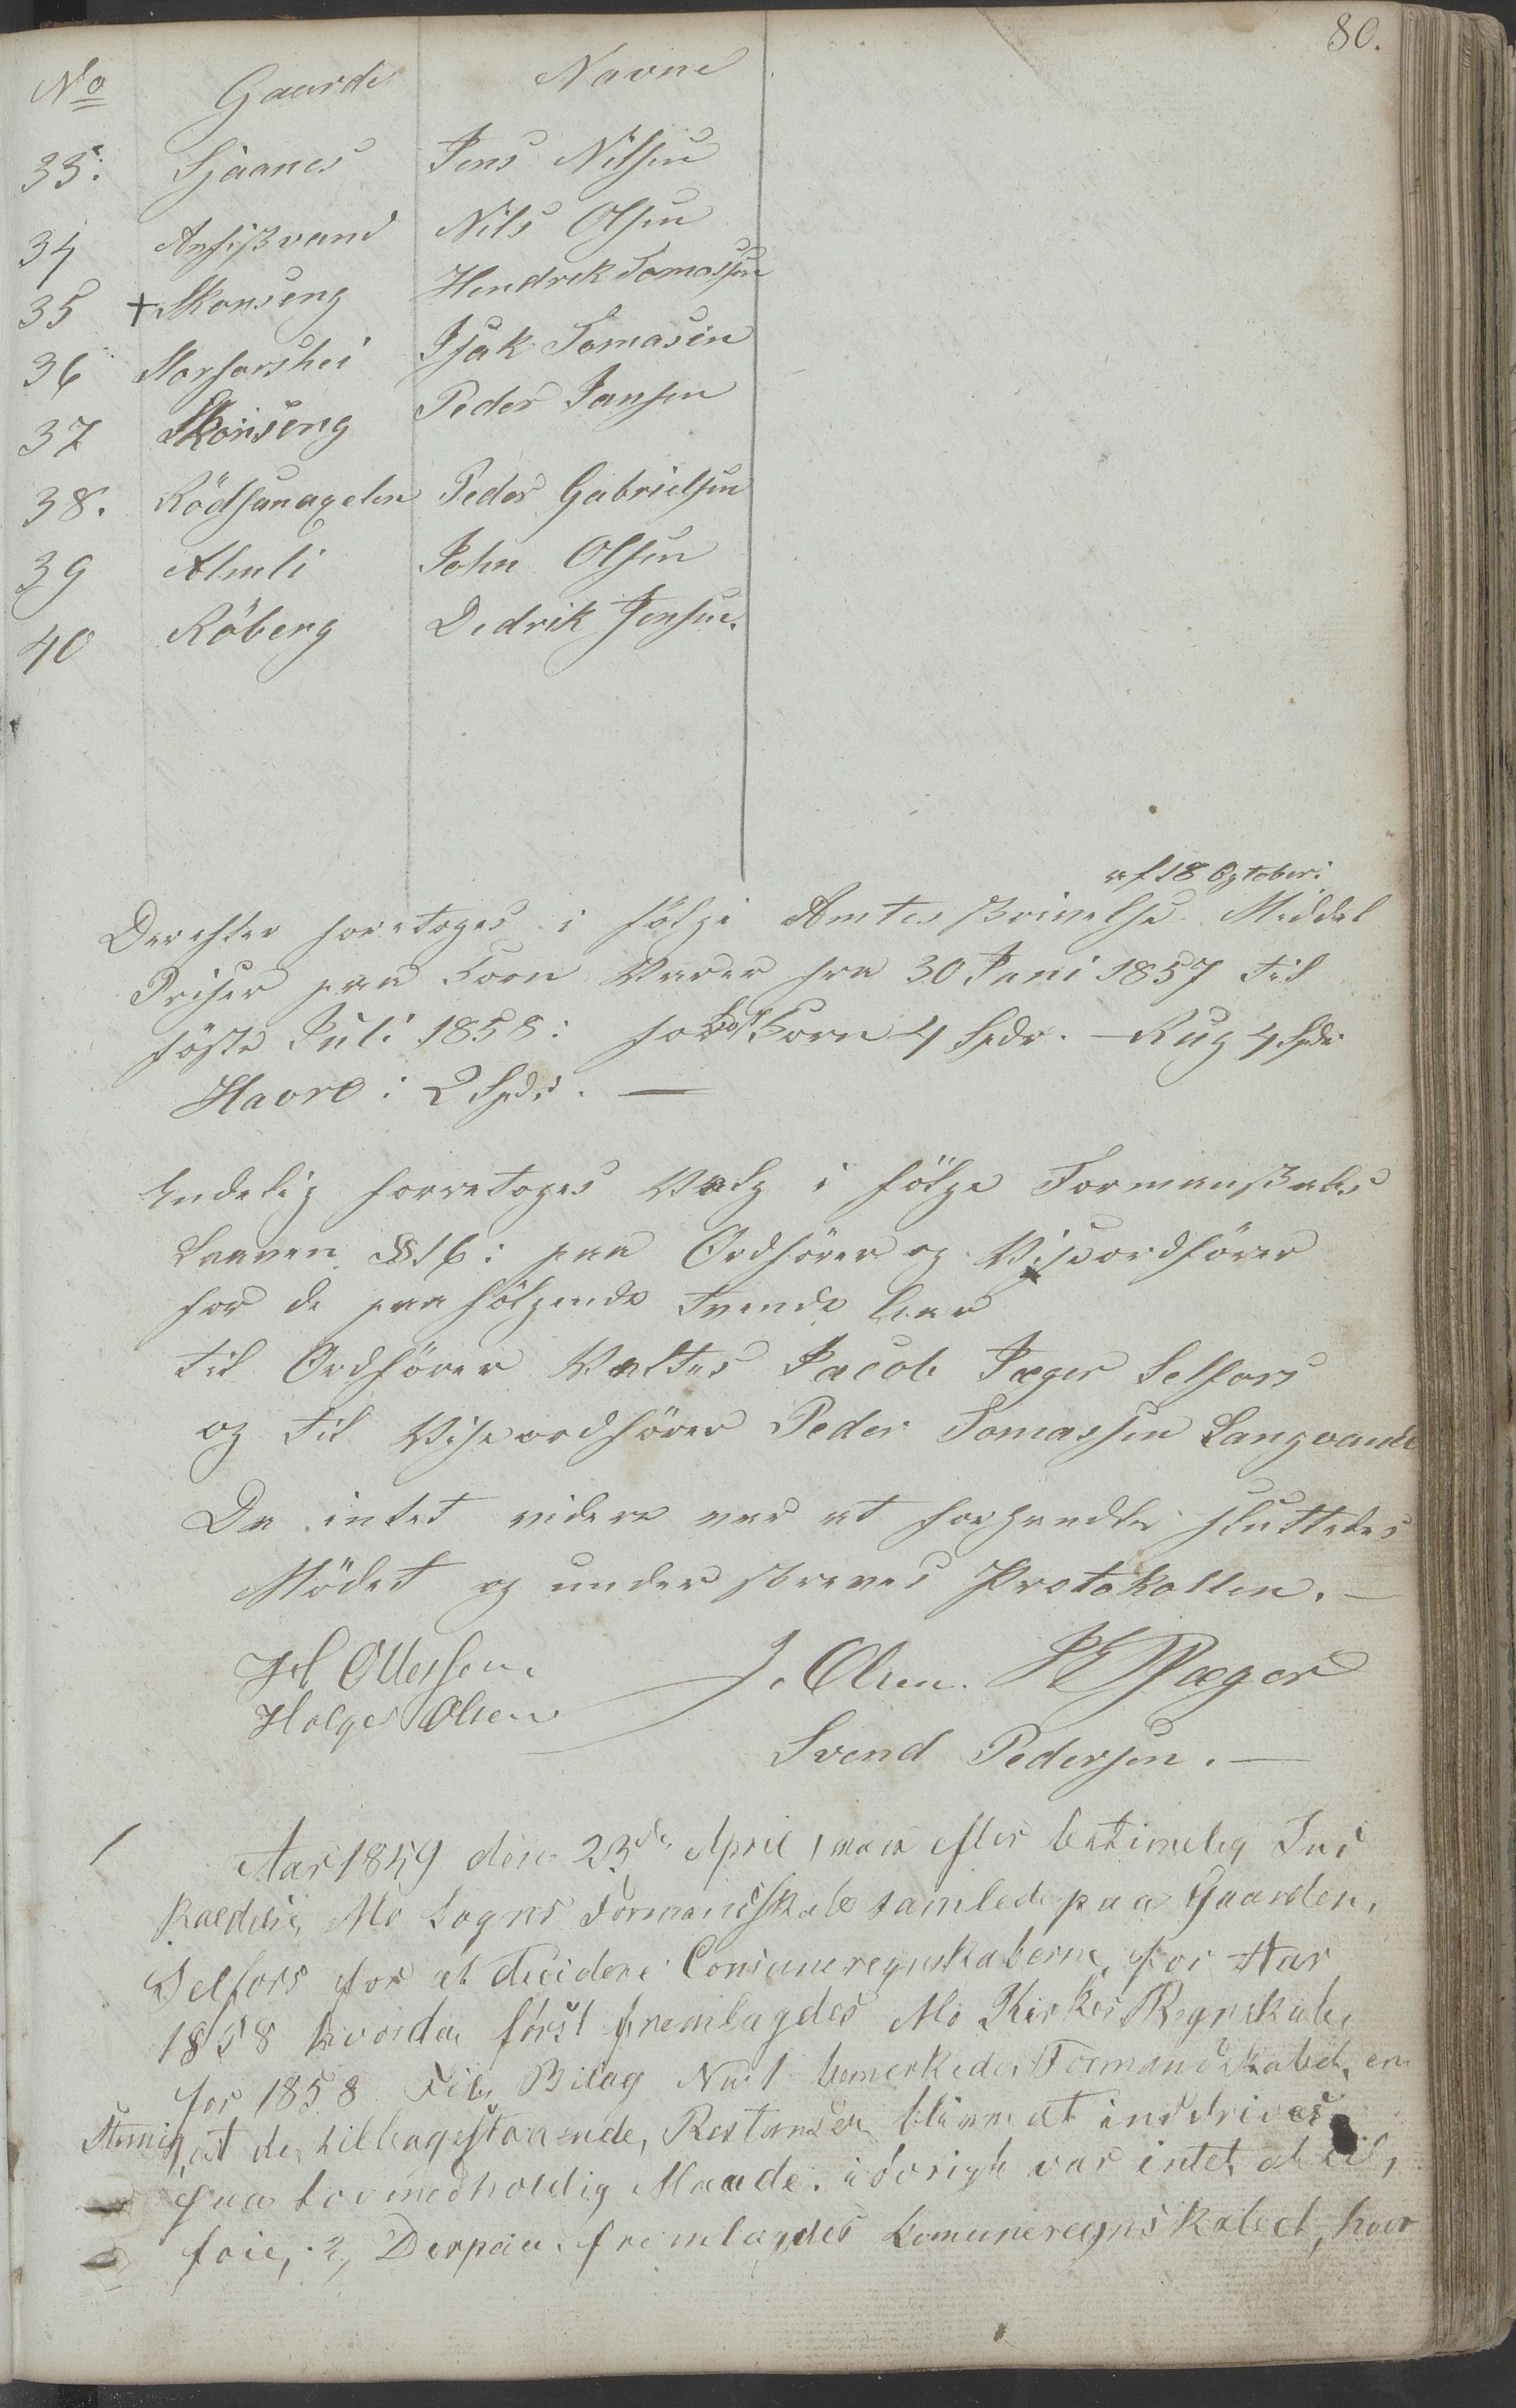 80.
No Gaarde Navne
33. Sjaanes Jens Nilsen
34 Ansißvand Nils Olsen
35 + Skonseng Hendrik Tomassen
36 Storforshei Isak Tomasen
37 Skonseng Peder Jansen
38. Rödsanagelen Peder Gabrielsen
39 Almli John Olsen
40 Röberg Dedrik Jensen.
af 18 Ogtober:
Derefter foretoges i fölge Amtes skrivelse Middel
Priser paa Korn Varer fra 30 Juni 1857 til
förste Juli 1858: for Korn 4 Spdr. – Rug 4 Spdr
Havre: 2 Spdr. —
Endelig forretoges Valg i fölge Formanskabs
Laaven §16: paa Ordförer og Viseordförer
for de paa fölgende tvende Aar
til Ordförer Valtes Jacob Jæger Selfors
og til Viseordförer Peder Tomassen Langvand
Da intet videre var at forhandle sluttedes
Mödet og under skreves Protokollen. –
H Ottessen. J. Olsen. Jæger
Holger Olsen
Svend Pedersen. —
Aar 1859 den 23de April var efter betimelig Ind
kaldelse Mo Sogns Formandskab samlede paa Gaarden
Selfors for at decidere Comuneregnskaberne for Aar
1858 hvorda först fremlagdes Mo Kirkes Regnskab
for 1858 Til Bilag No 1 bemerkede Formandskabet, en
stemig, at de tilbagestaaende, Restanser bliver at inddrives
paa lovmedholdig Maade. i övrigt var intet at til,
föie, 2, Derpaa fremlagdes Comuneregnskabet, hvor